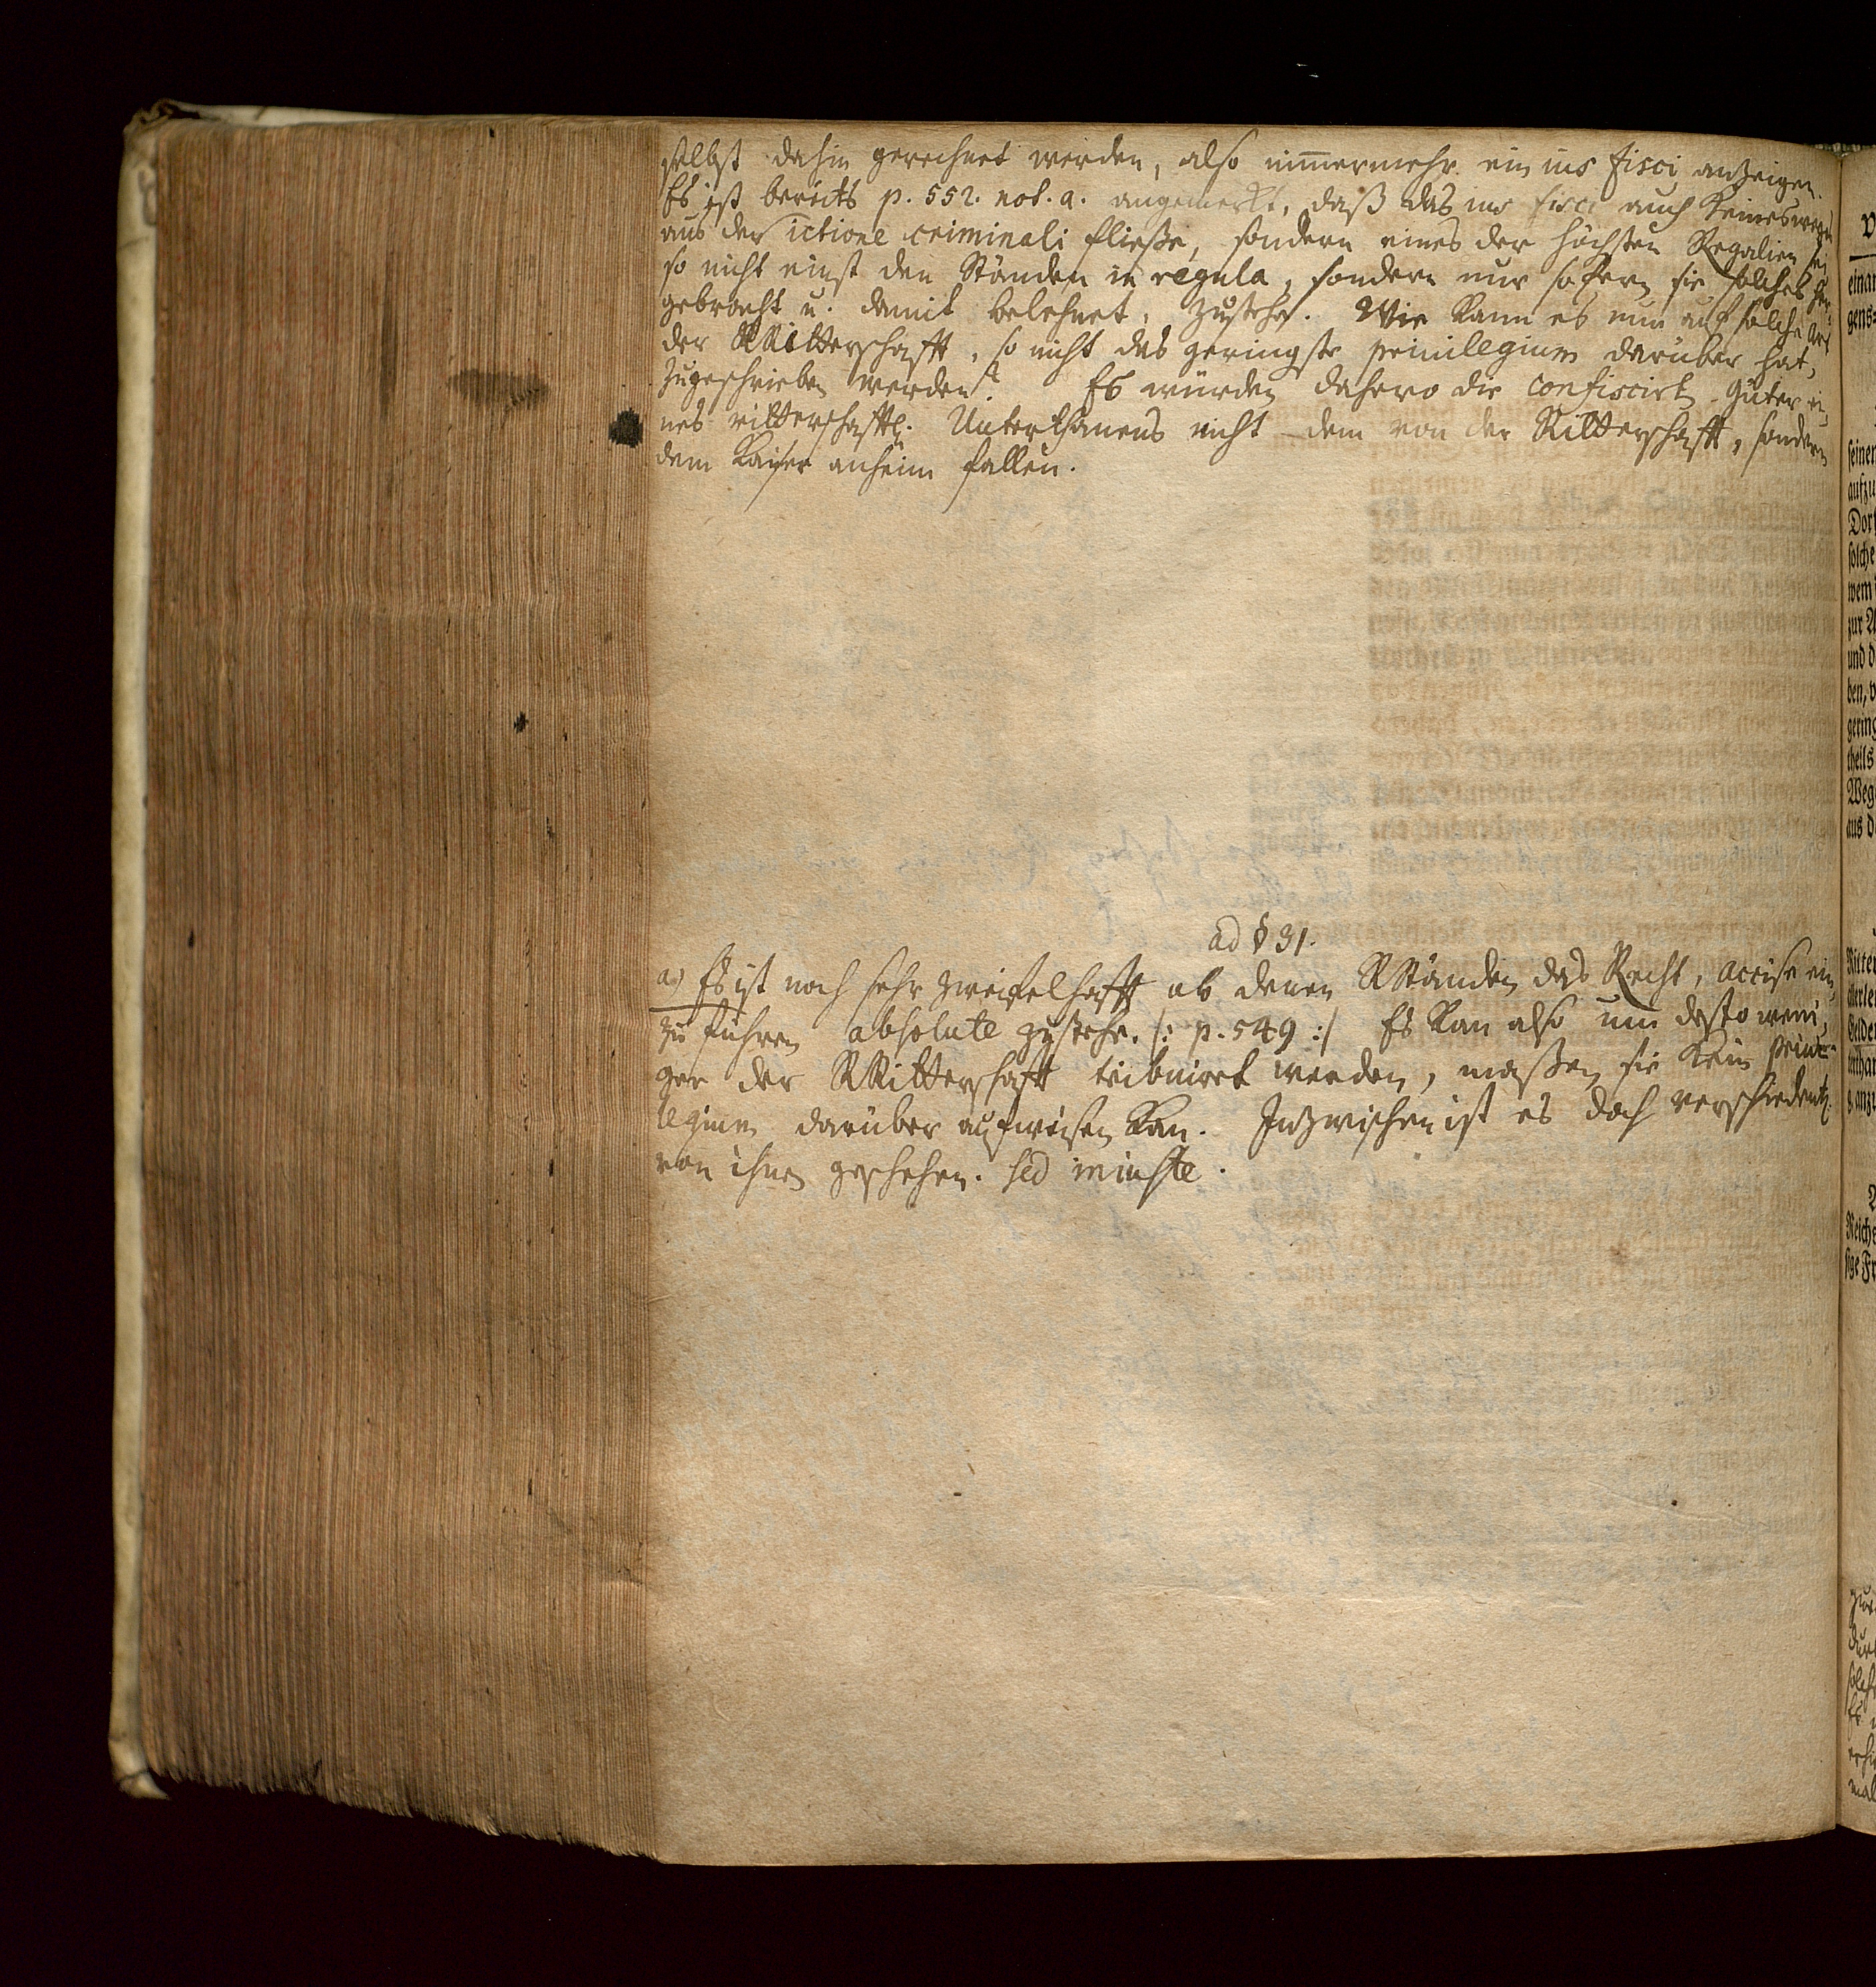 selbst dahin gerechnet werden, also nimmermehr ein ius fisci anzeigen.
Es ist bereits p. 552. not. a. angemerkt, daß das ius fisci auch keineswegs
aus der ictione criminali fließe, sondern eines der höchsten Regalien sei
so nicht einst den Ständen in regula, sondern nur sofern sie solches her-
gebracht u. damit belehnet, zustehe. Wie kann es nun auf solche Art
der RRitterschafft, so nicht das geringste privilegium darüber hat,
zugeschrieben werden? Es würden dahero die confiscirt. Güter ei-
nes ritterschafftl. Unterthanens nicht dem von der Ritterschafft, sondern
dem Kaiser anheim fallen.
ad § 31.
a) Es ist noch sehr zweifelhafft ob denen RStänden das Recht, accise ein
zu führen absolute zustehe. /: p. 549 :/ Es kan also um desto weni-
ger der RRitterschafft tribuiret werden, maßen sie kein privi-
legium darüber aufweisen kan. Inzwischen ist es doch verschiedentl.
von ihnen geschehen. sed iniuste.
einan
gens-
seiner
aufzu
Dorf
solche
wem
zur A
und d
ben, v
gering
theils
Weg
aus d
Ritter
allerle
Gelder
anzu
Reichs
sige Fr